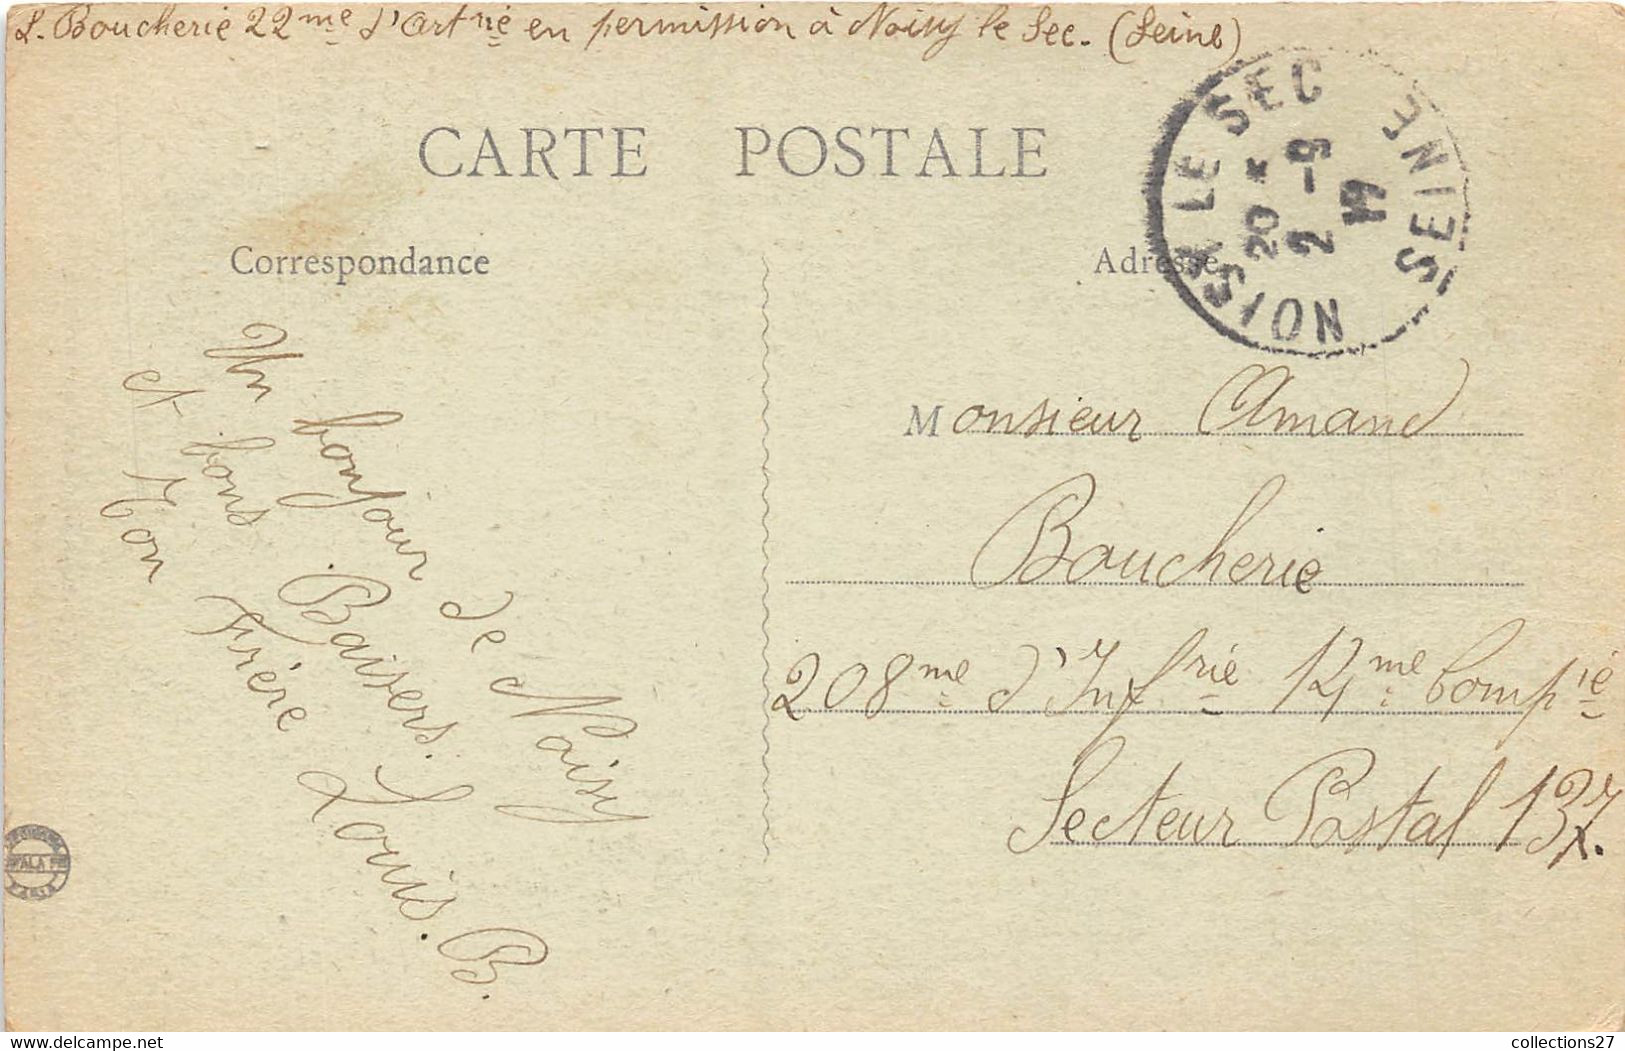 L. Boucherie 22me d'Artrie en permission à Noisy le Sec. (Seine)
CARTE POSTALE
NOISY LE SEC
SEINE
20 *
2 - 9
Correspondance
Adresse
Un bonjour de Noisy
et bons Baisers.
Ton Frère Louis. B.
Monsieur Amand
Boucherie
208me d'Infrie 14me Compie
Secteur Postal 137.
PARIS
collections27